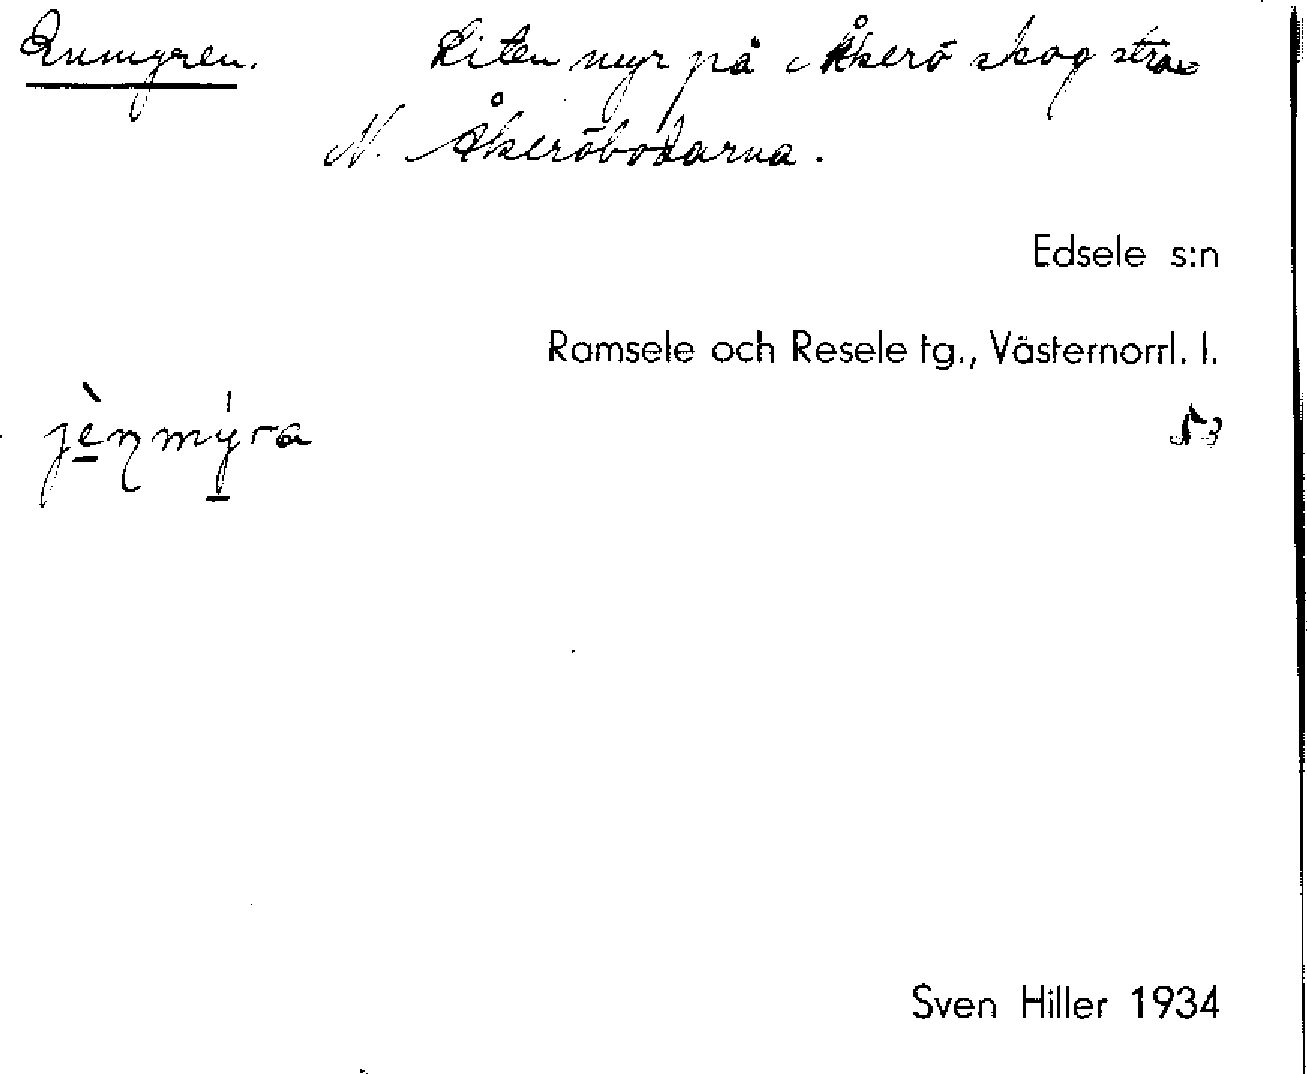 Liten myr på Åkerö skog strax
N. Åkeröbodarna.
Edsele s:n
Ramsele och Resele tg., Västernorrl. l.
jènmýra
53
Sven Hiller 1934